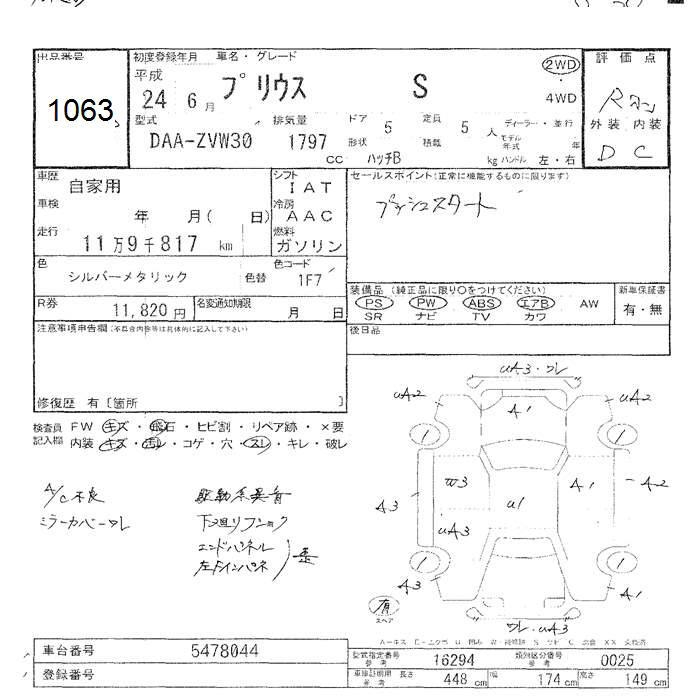 出品番号 初度登録年月 車名・グレード 2WD 評価点
平成 プリウス S
1063 24 6月 4WD R
型式 排気量 ドア 定員 ディーラー・並行 外装 内装
DAA-ZVW30 1797 5 5人 モデル年式 年 D C
cc 形状 ハッチB 積載 kg ハンドル 左・右
車歴 自家用 シフト IAT セールスポイント(正常に機能するものに限ります)
車検 年 月( 日) 冷房 AAC プッシュスタート
走行 11万9千817 km 燃料 ガソリン
色 シルバーメタリック 色替 色コード 1F7
装備品(純正品に限り○をつけてください) 新車保証書
PS PW ABS エアB AW 有・無
SR ナビ TV カワ
R券 11,820円 名変通知期限 月 日
注意事項申告欄(不具合内容等は具体的に記入して下さい) 後日品
修復歴 有〔箇所 〕
検査員記入欄 FW キズ・飛石・ヒビ割・リペア跡・×要
内装 キズ・汚レ・コゲ・穴・スレ・キレ・破レ
A/C不良 駆動系異音
ミラーカバーワレ 下廻リ
エンドパネル
uA3・ワレ
uA2 A1 uA2
1 1
A3 W3 u1 A1 A2
uA3
1 1
A3 A1
有 スペア
ワレ・uA3
車台番号 5478044
登録番号
型式指定番号 参考 16294 類別区分番号 参考 0025
長さ 448cm 幅 174cm 高さ 149cm